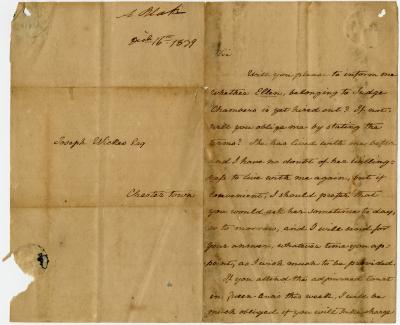 Blake
16th 1839
Joseph Wickes Esq
Chester town
Will you please to inform me
whether Ellen, belonging to Judge
Chambers is yet hired out? If not
will you oblige me by stating the
terms? She has lived with me before
and I have no doubt of her willing-
ness to live with me again, but if
convenient, I should prefer that
you would ask her sometime to day,
or to morrow, and I will send for
your answer, whatever time you ap-
point, as I wish much to be provided.
If you attend the adjourned Court
in Queen Anns this week, I will be
much obliged if you will take charge